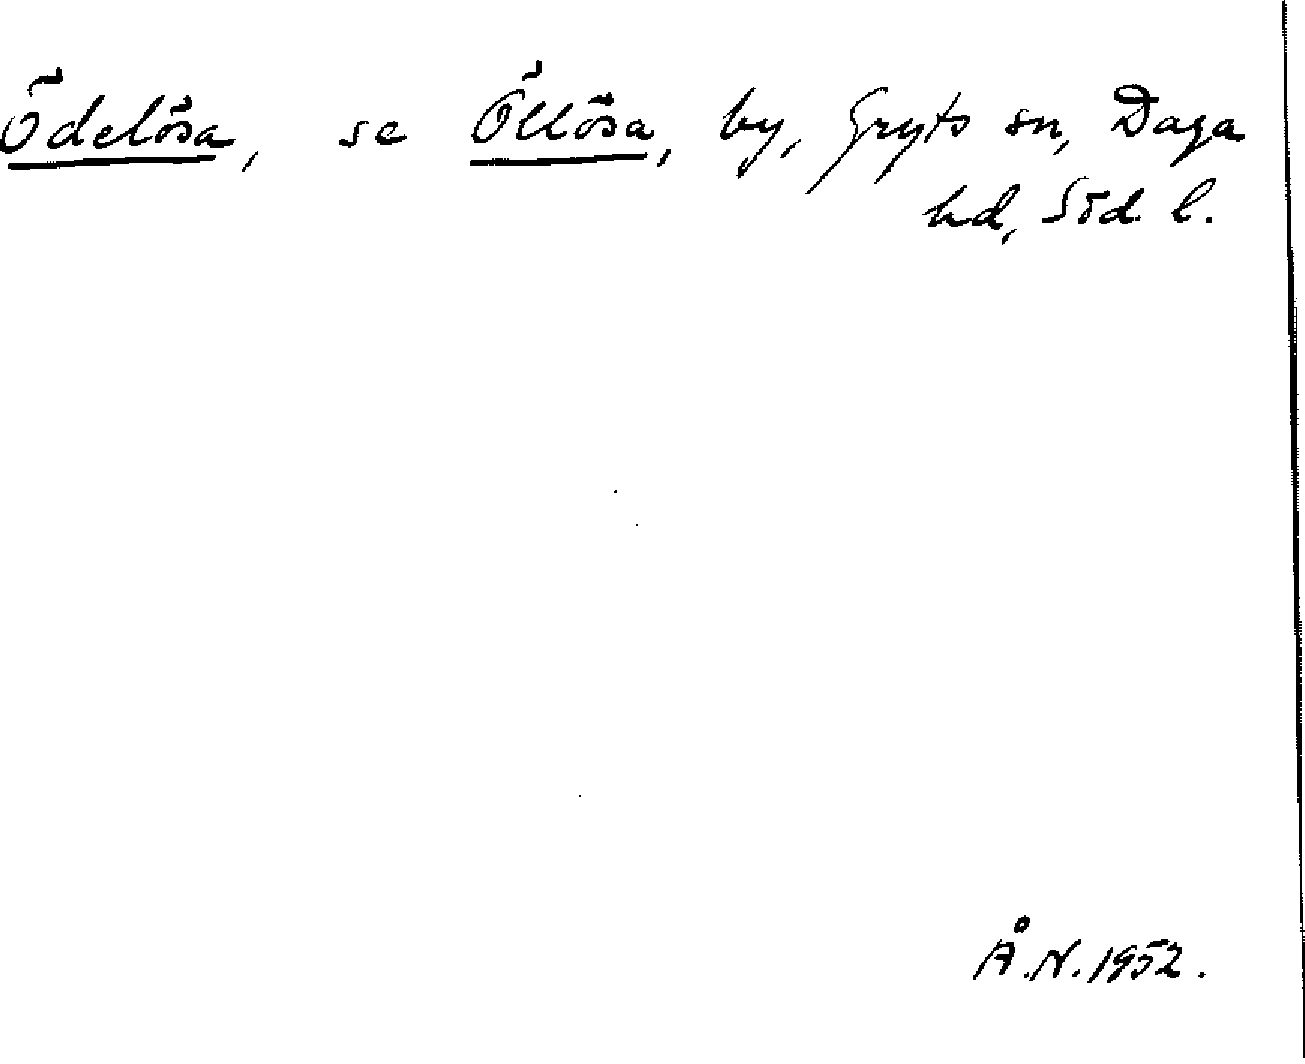 Ödelösa, se Öllösa, by, Gryts sn, Daga
hd, Söd. l.
Å.N. 1952.